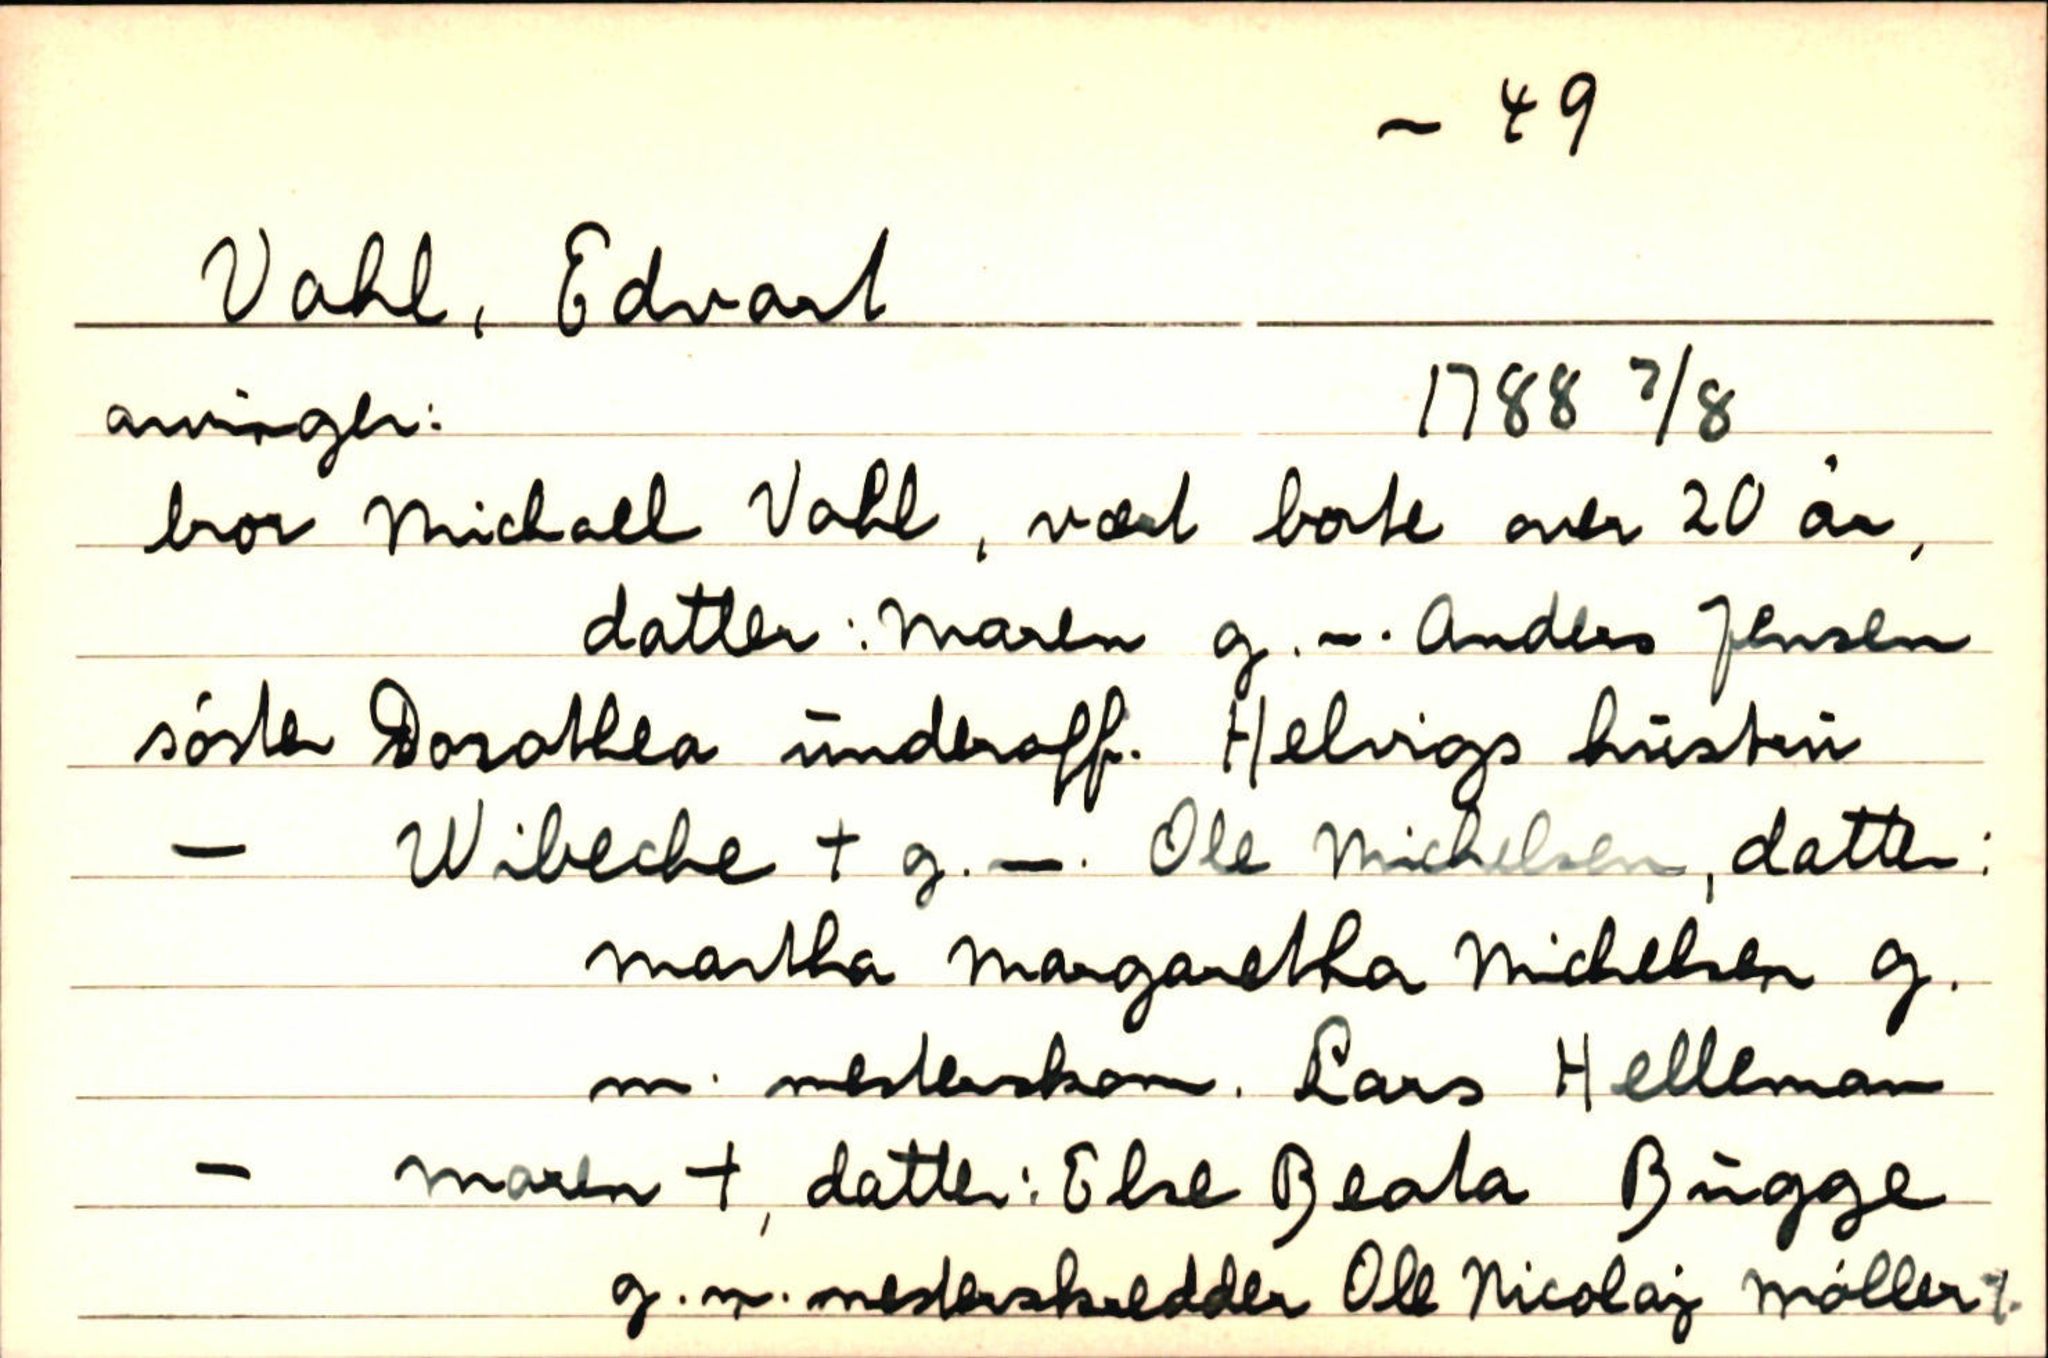 ~ 49
Vahl, Edvart
arvinger: 1788 7/8
bror Michael Vahl, vært borte over 20 år,
datter: Maren g. m. Anders Jensen
søster Dorothea underoff. Helvigs hustru
— Wibeche + g. m. Ole Michelsen, datter:
Martha Margaretha Michelsen g.
m. mesterskom. Lars Helleman
— Maren +, datter: Else Beata Bugge
g. m. mesterskredder Ole Nicolaj Møller ./.